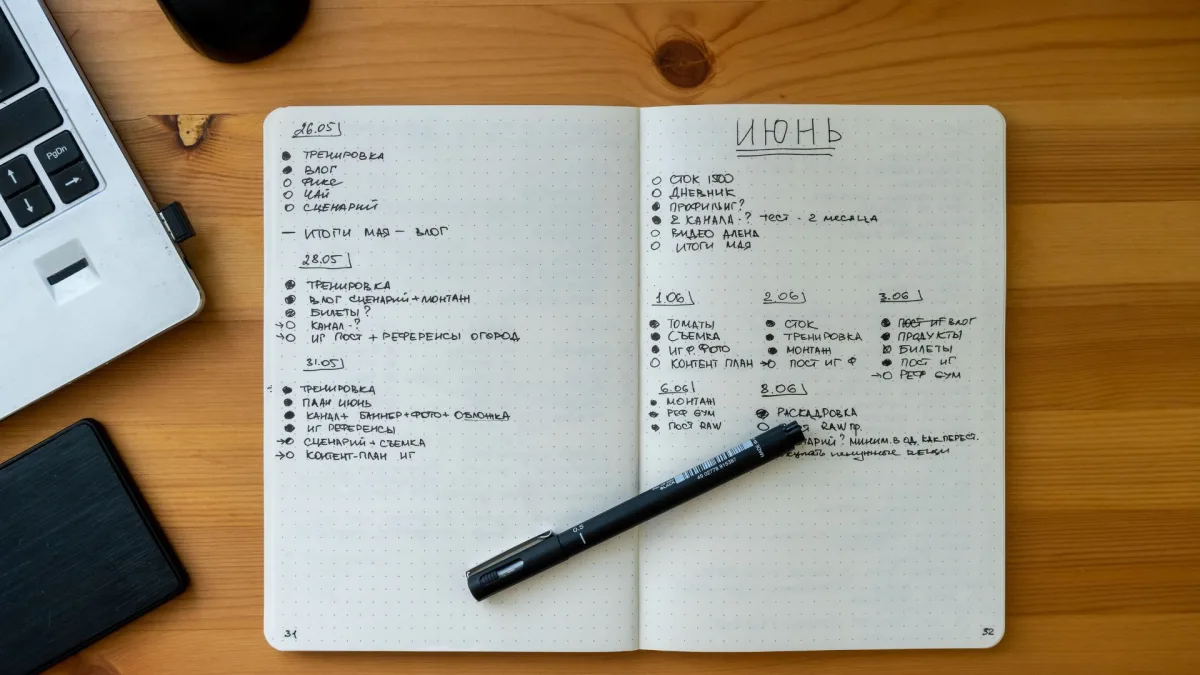 PgDn
26.05
ТРЕНИРОВКА
ВЛОГ
ФИКС
ЧАЙ
СЦЕНАРИЙ
— ИТОГИ МАЯ – ВЛОГ
28.05
ТРЕНИРОВКА
ВЛОГ СЦЕНАРИЙ+МОНТАЖ
БИЛЕТЫ?
КАНАЛ-?
ИГ ПОСТ + РЕФЕРЕНСЫ ОГОРОД
31.05
ТРЕНИРОВКА
ПЛАН ИЮНЬ
КАНАЛ+ БАННЕР+ФОТО+ ОБЛОЖКА
ИГ РЕФЕРЕНСЫ
СЦЕНАРИЙ+СЪЕМКА
КОНТЕНТ-ПЛАН ИГ
31
ИЮНЬ
СТОК 1500
ДНЕВНИК
2 КАНАЛА-? ТЕСТ - 2 МЕСЯЦА
ВИДЕО АЛЕНА
ИТОГИ МАЯ
1.06
ТОМАТЫ
СЪЕМКА
ИГ Ф. ФОТО
КОНТЕНТ ПЛАН
2.06
СТОК
ТРЕНИРОВКА
МОНТАЖ
ПОСТ ИГ Ф
3.06
ПОСТ ИГ ВЛОГ
ПРОДУКТЫ
БИЛЕТЫ
ПОСТ ИГ
РЕФ GYM
6.06
МОНТАЖ
РЕФ GYM
ПОСТ RAW
8.06
РАСКАДРОВКА
RAW
? МИНИМ. В ОД. КАК ПЕРЕСТ.
ненужные вещи
0.5
BLACK
32